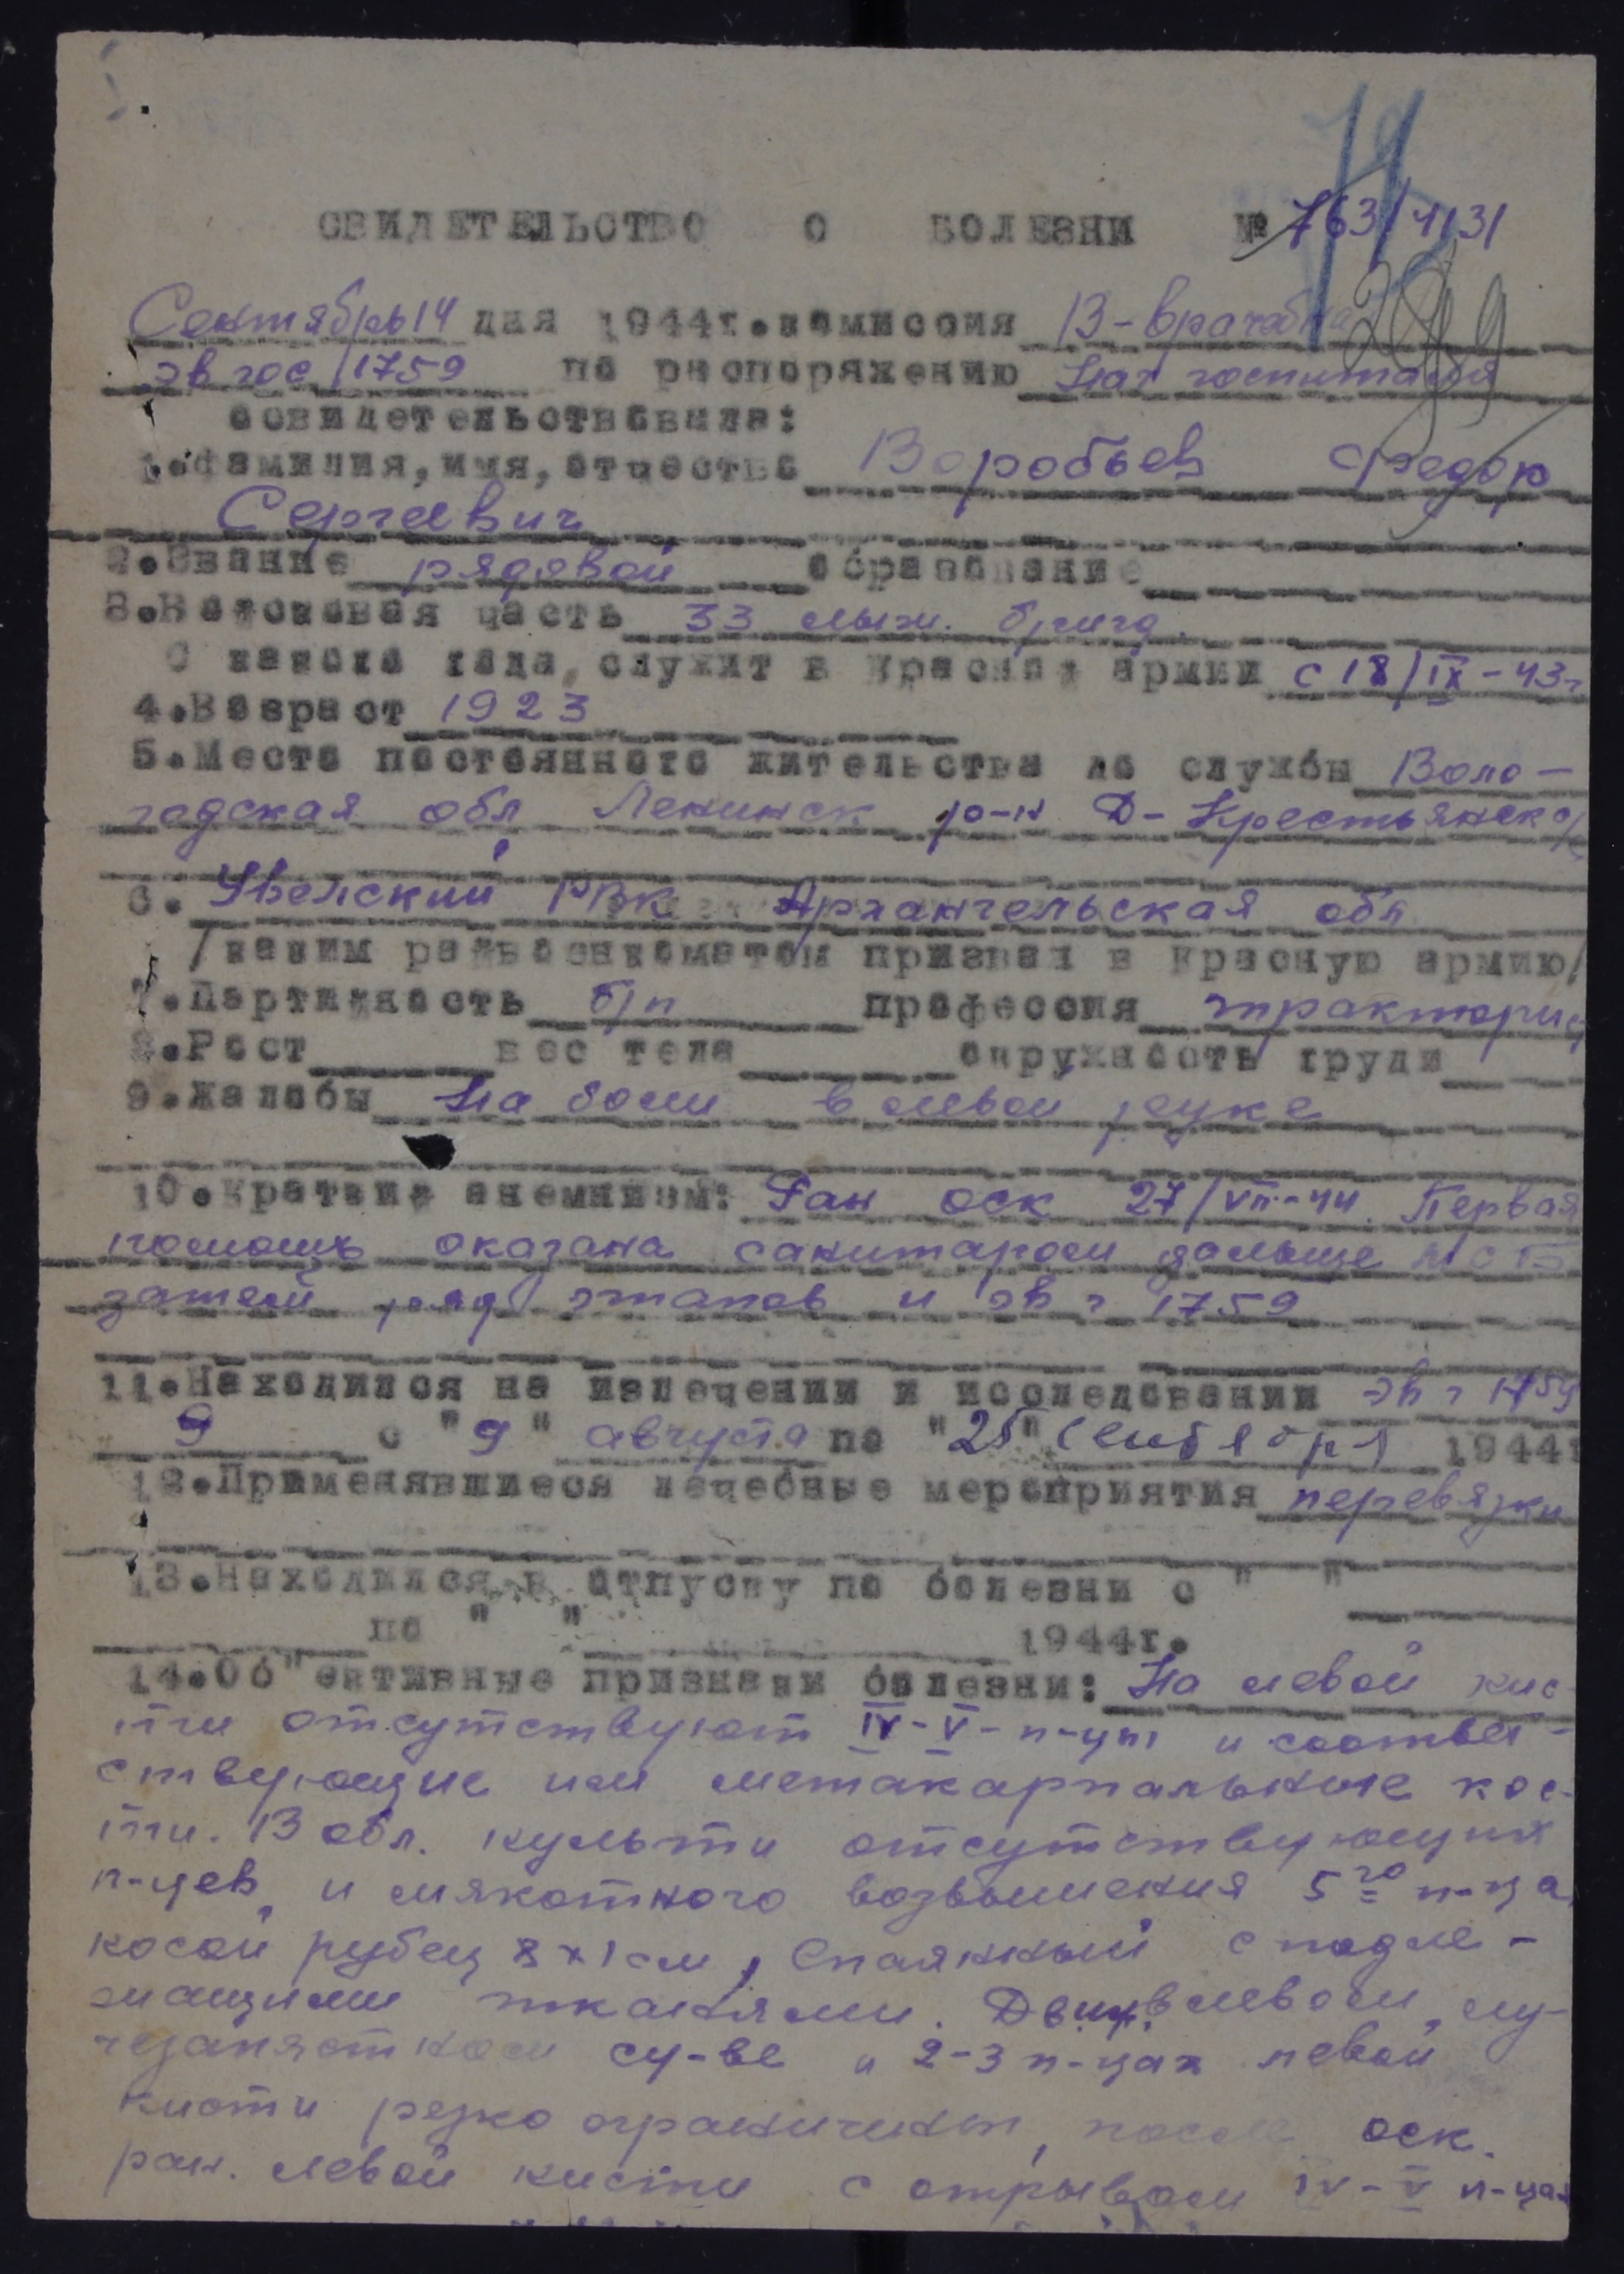 СВИДЕТЕЛЬСТВО О БОЛЕЗНИ № 763/1131
Сентябрь 14 дня 1944г. комиссия В-врачебная
эв гос/1759 по распоряжению Нач госпиталя
освидетельствовала:
1. Фамилия, имя, отчество Воробьев Федор
Сергеевич
2. Звание рядовой образование
3. Войсковая часть 33 лыж. бригад.
С какого года, служит в Красной армии с 18/IX-43г
4. Возраст 1923
5. Место постоянного жительства до службы Воло-
годская обл Ленинск р-н Д-Крестьянск
6. РВК Архангельская обл
/каким райвоенкоматом призван в красную армию/
7. Партийность б/п профессия тракторис
8. Рост вес тела окружность груди
9. Жалобы На боли в левой руке
10. Краткий анемнизм: Ран оск 27/VII-44. Первая
помощь оказана санитаром дальше МСБ
затем ряд этапов и эв г 1759
11. Находился на излечении и исследовании эв г 1759
9 с "9" августа по "25" сентября 1944г
12. Применявшиеся лечебные мероприятия перевязки
13. Находился в отпуску по болезни с " "
по " " 1944г.
14. Об"ективные признаки болезни: На левой кис-
ти отсутствуют IV-V-п-цы и соответ-
ствующие им метакарпальные кос-
ти. В обл. культи отсутствующих
п-цев и мякотного возвышения 5го п-ца
косой рубец 8×1 см, спаянный с подле-
жащими тканями. Движ. в левом лу-
чезапястном су-ве и 2-3 п-цах левой
кисти резко ограничены, после оск.
ран. левой кисти с отрывом IV-V п-цах